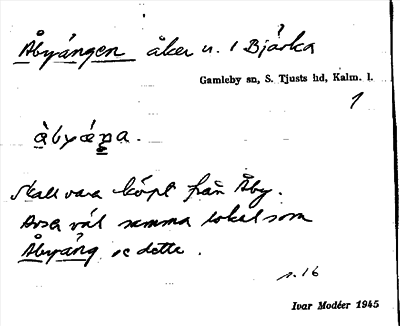 Åbyängen åker u. 1 Bjärka
Gamleby sn, S. Tjusts hd, Kalm. l.
1
àbyáŋa.
Skall vara köpt från Åby.
Avser väl samma lokal som
Åbyäng se detta.
s. 16
Ivar Modéer 1945